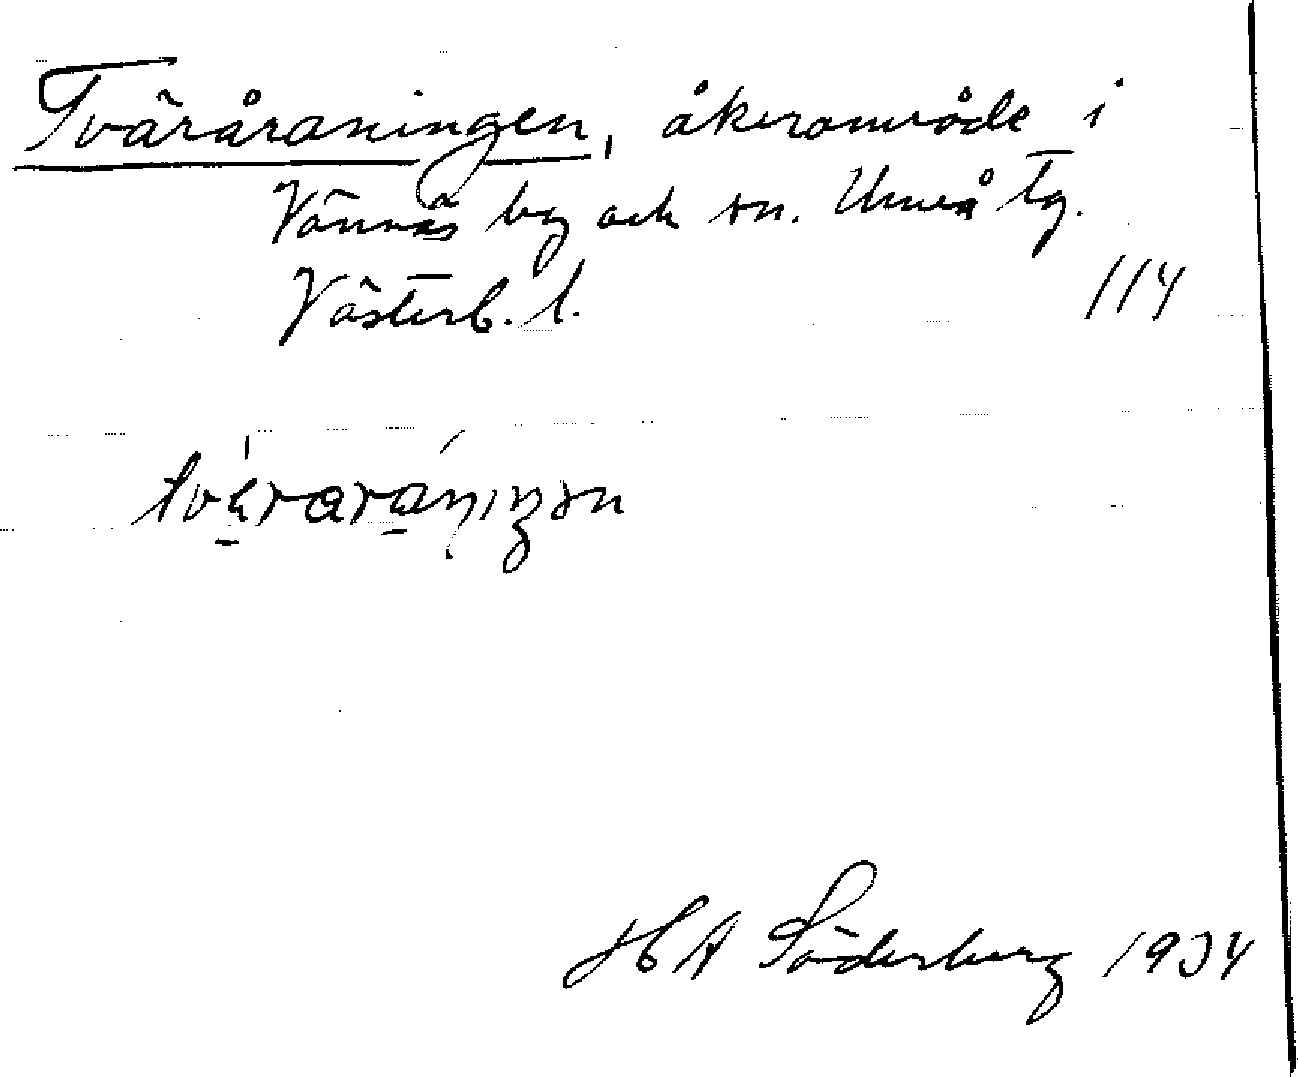 Tväråraningen, åkerområde i
Vännäs by och sn. Umeå tg.
Västerb. l. 114
H A Söderberg 1934